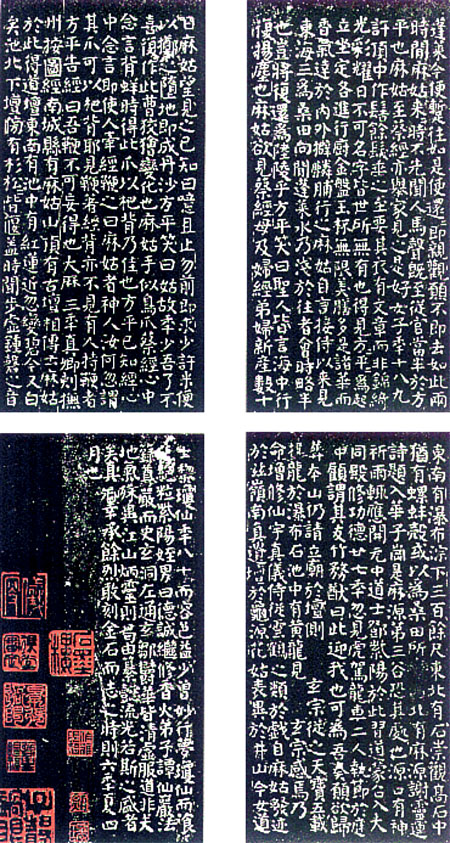 蓬萊今便蹔往如是便還還即親覲願不即去如此兩
時間麻姑来時不先聞人馬聲既至從官當半於方
平也麻姑至蔡經亦舉家見之是好女子年十八九
許頂中作髻餘髮垂之至要其衣有文章而非錦綺
光彩耀日不可名字皆世所無有也得見方平方平為起
立坐定各進行廚金盤玉杯無限美膳多是諸華而
香氣達於內外擗麟脯行之麻姑自言接待以来見
東海三為桑田向間蓬萊水乃淺於往者會時略半
也豈將復還為陸陵乎方平笑曰聖人皆言海中行
復揚塵也麻姑欲見蔡經母及婦經弟婦新產數十
日麻姑望見之已知曰噫且止勿前即求少許米便
以擲之墮地即成丹沙方平笑曰姑故年少吾了不
喜復作此曹狡獪變化也麻姑手似鳥爪蔡經心中
念言背蛘時得此爪以杷背乃佳也方平已知經心
中念言即使人牽經鞭之曰麻姑者神人汝何忽謂
其爪可以杷背耶見鞭著經背亦不見有人持鞭者
方平告經曰吾鞭不可妄得也大曆三年真卿刺撫
州按圖經南城縣有麻姑山頂有古壇相傳云麻姑
於此得道壇東南有池中有紅蓮近忽變碧今又白
矣池北下壇傍有杉松皆偃蓋時聞步虛鍾磬之音
東南有瀑布淙下三百餘尺東北有石崇觀高石中
猶有螺蚌殼或以為桑田所 北有麻源謝靈運
詩題入華子崗是麻源第三谷恐其處也源口有神
祈雨輒應開元中道士鄧紫陽於此習道蒙召入大
同殿修功德廿七年忽見虎駕龍車二人執節於庭
中顧謂其友竹務猷曰此迎我也可為吾奏願欲歸
葬本山仍請立廟於壇側 玄宗從之天寶五載
投龍於瀑布石池中有黃龍見 玄宗感焉乃
命增修仙宇真儀侍從雲鶴之類於戲自麻姑發迹
於茲嶺南真遺壇於龜源花姑表異於井山今女道
士黎瓊仙年八十而容色益少曾妙行夢瓊仙而飡花
絕粒紫陽姪男曰德誠繼修香火弟子譚仙巖法
籙尊嚴而史玄洞左通玄鄒鬱華皆清虛服道非夫
地氣殊異江山炳靈則曷由纂懿流光若斯之盛者
矣真卿幸承餘烈敢刻金石而志之時則六年夏四
月也